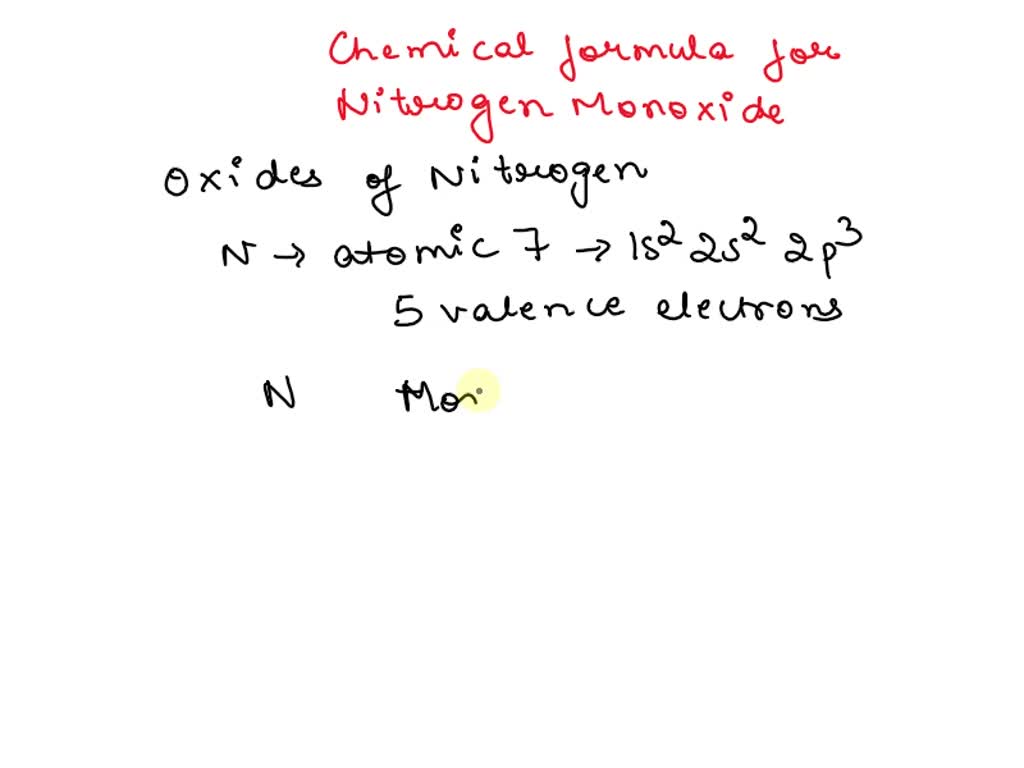 Chemical formula for
Nitrogen Monoxide
Oxides of Nitrogen
N → atomic 7 → 1s² 2s² 2p³
5 valence electrons
N Mon